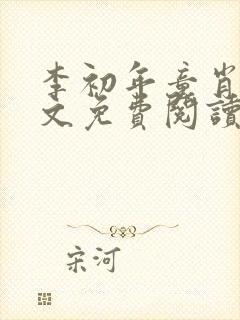 李初年章肖
文免費閱讀
宋河